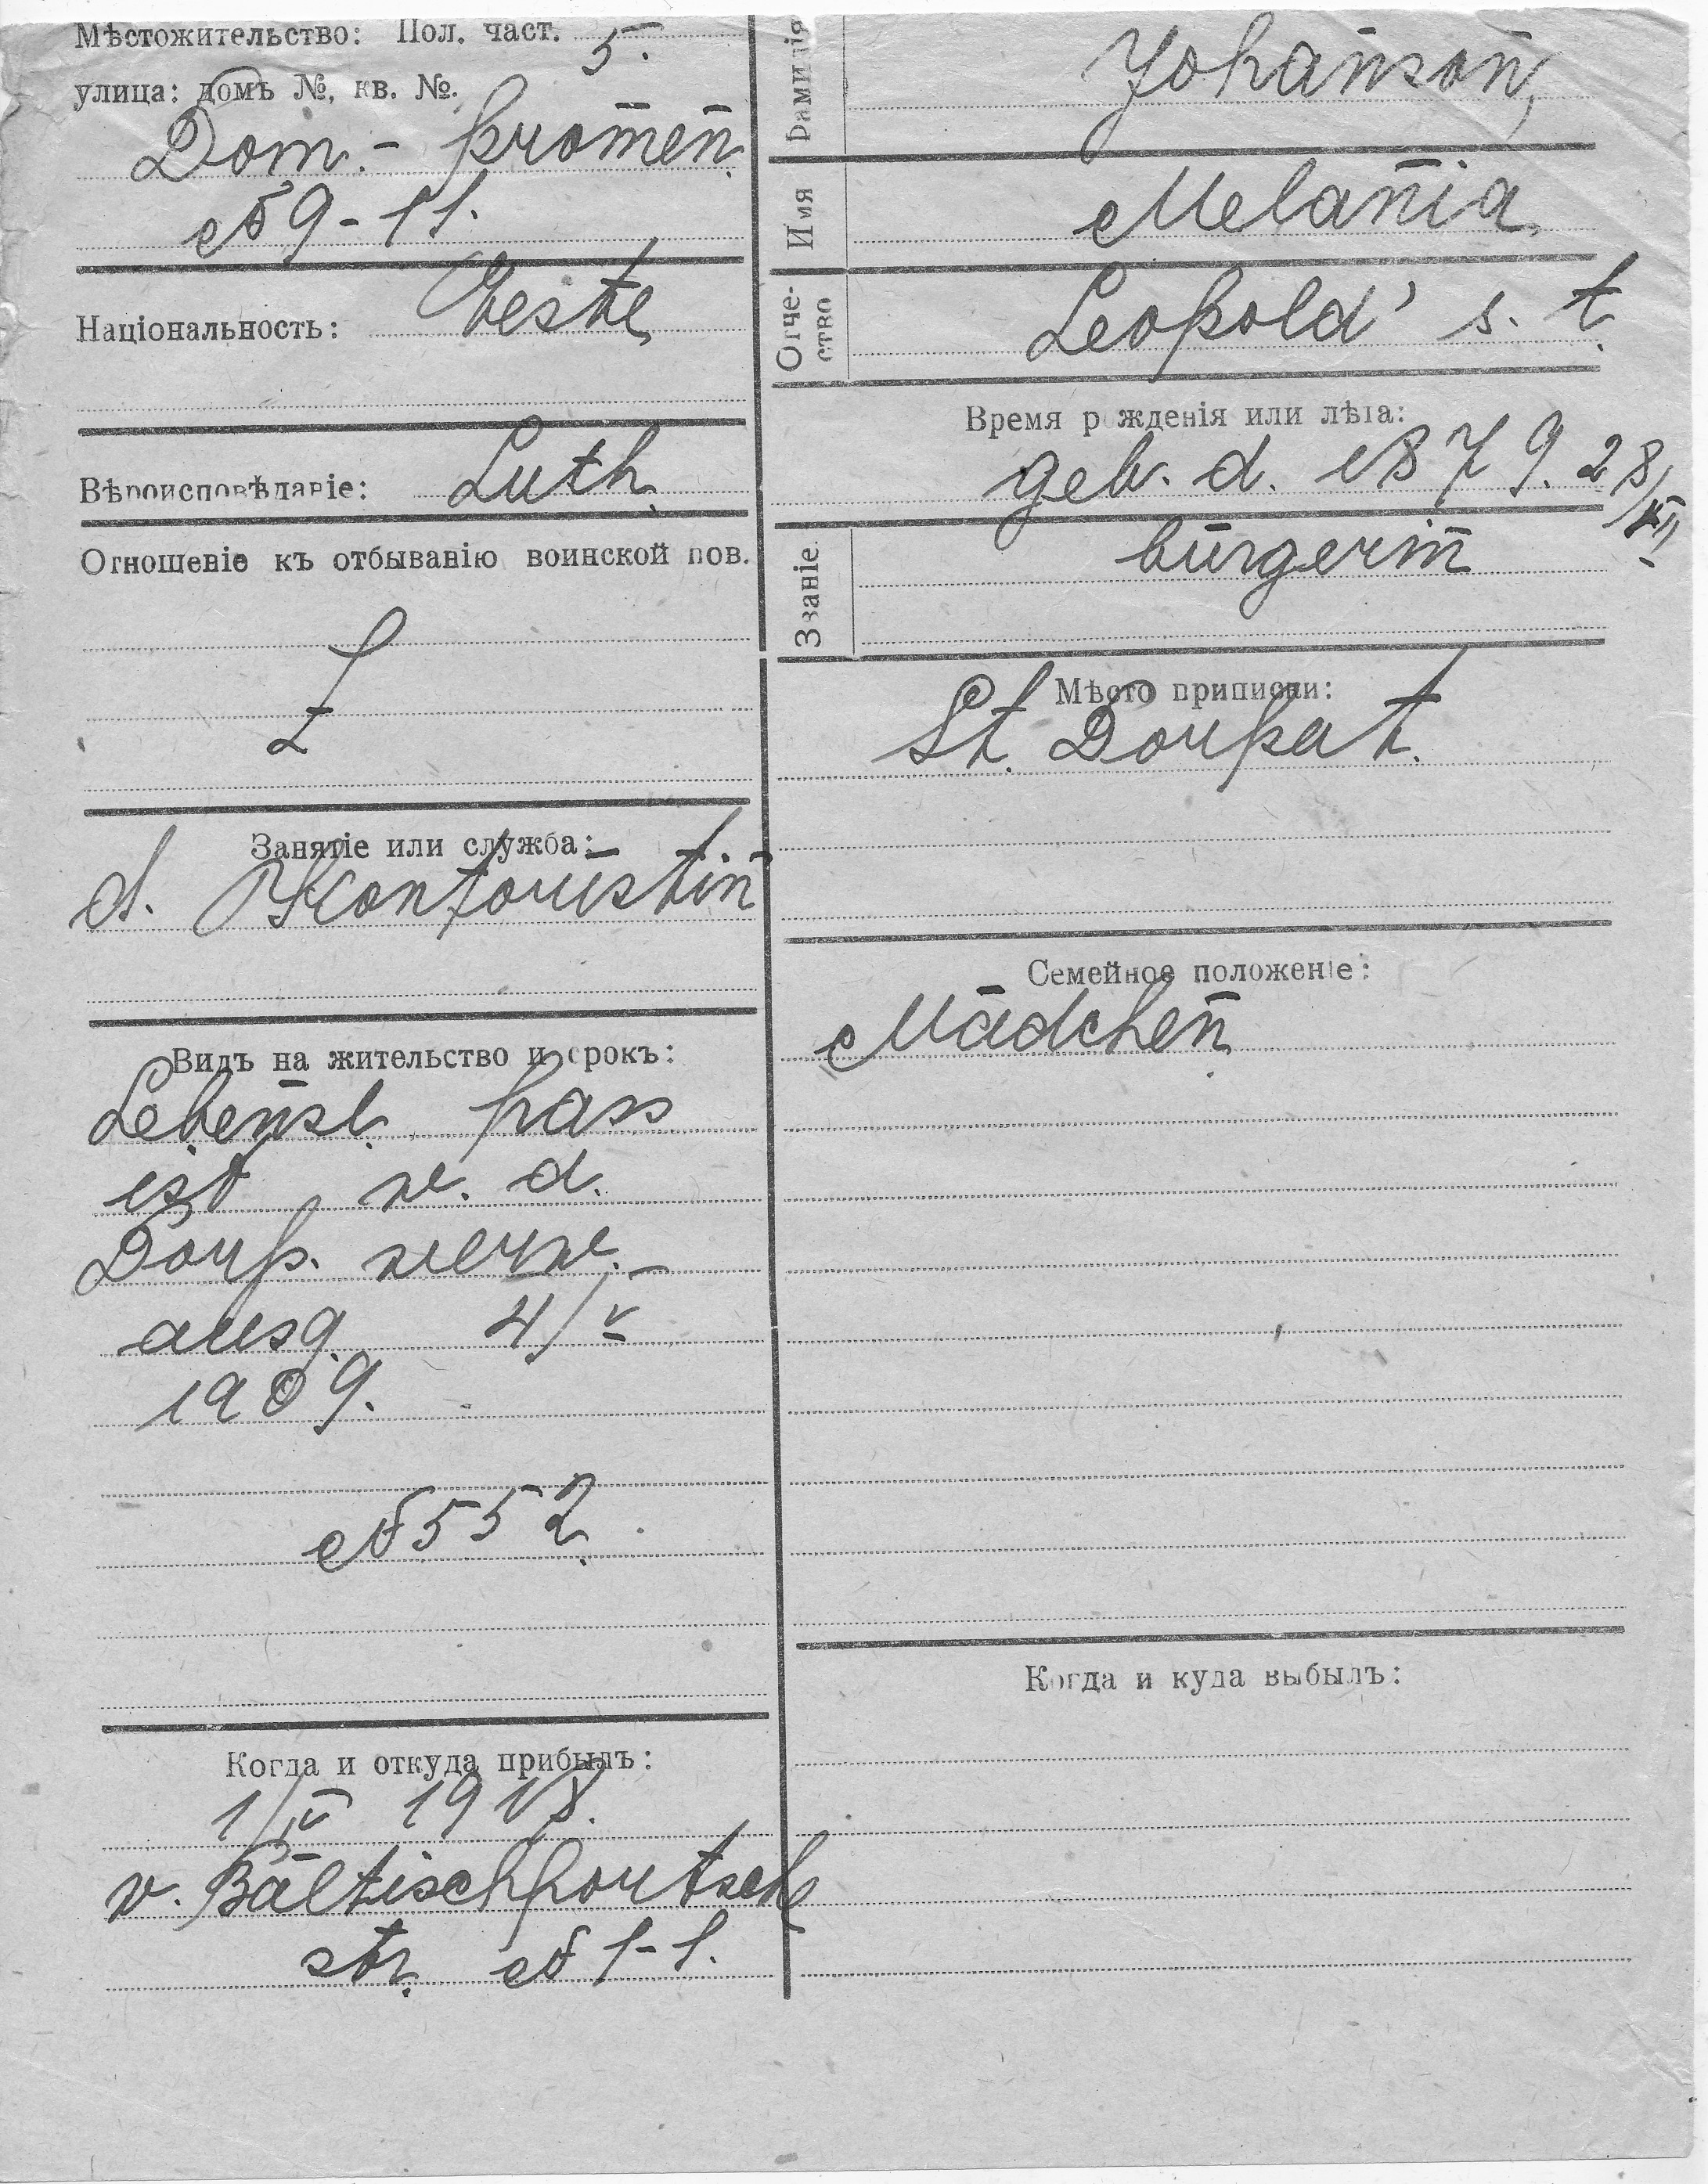 Мѣстожительство: Пол. част. 5.
улица: домъ №, кв. №.
Dom.- promen.
№ 9-11.
Національность: Eeste
Вѣроисповѣданіе: Luth.
Отношеніе къ отбыванію воинской пов.
Занятіе или служба:
d. Kontoristin
Видъ на жительство и срокъ:
Lebensl. pass
ist v. d.
Dorp. verw.
ausg. 4/V
1909.
№ 552.
Когда и откуда прибылъ:
1/IV 1918.
v. Baltischportsch
str. № 1-1.
Фамилія
Johanson,
Имя
Melania
Отчество
Leopold's. t.
Время рожденія или лѣта:
geb. d. 1879. 28/XII
Званіе.
bürgerin
Мѣсто приписки:
St. Dorpat.
Семейное положеніе:
Mädchen
Когда и куда выбылъ: